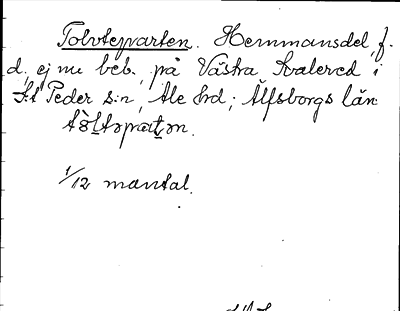 Tolvteparten. Hemmansdel, f.
d., ej nu beb., på Västra Kvalered i
S:t Peder s:n, Ale hd; Älfsborgs län.
1/12 mantal.